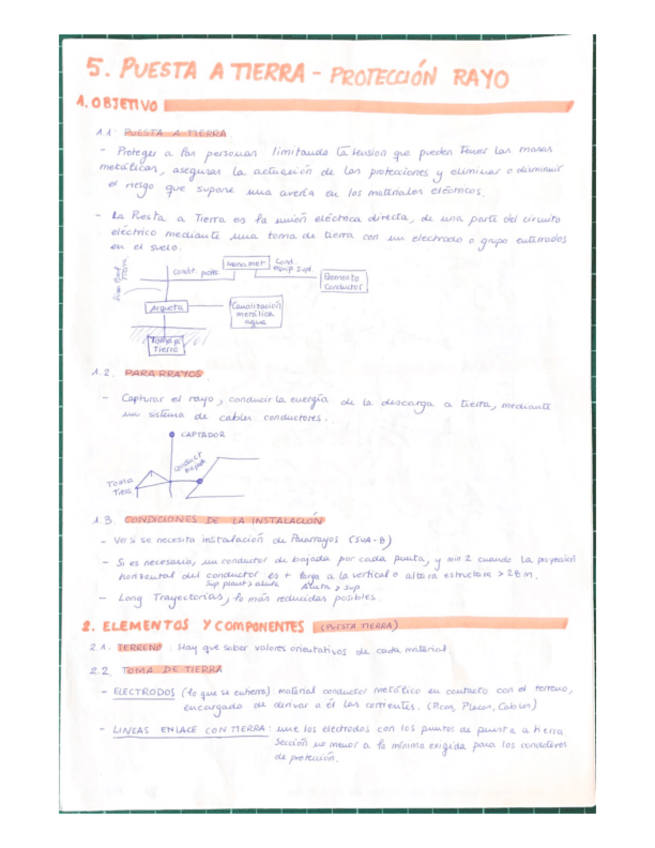 5. PUESTA A TIERRA - PROTECCIÓN RAYO
1. OBJETIVO
1.1. PUESTA A TIERRA.
- Proteger a las personas limitando la tension que pueden tener las masas
metálicas, asegurar la actuación de las protecciones y eliminar o disminuir
el riesgo que supone una avería en los materiales eléctricos.
- La Puesta a Tierra es la unión eléctrica directa, de una parte del circuito
eléctrico mediante una toma de tierra con un electrodo o grupo enterrados
en el suelo.
Condt. prote
Masa met
Cond. equip supl.
Elemento
Conductor
Arqueta
Canalización
metálica
agua
Toma
Tierra
1.2. PARARRAYOS.
- Capturar el rayo, conducir la energía de la descarga a tierra, mediante
un sistema de cables conductores.
CAPTADOR
conduct
Toma
Tierra
1.3. CONDICIONES DE LA INSTALACION
- Ver si se necesita instalación de Pararrayos (SUA-8)
- Si es necesario, un conductor de bajada por cada punta, y min 2 cuando la proyección
horizontal del conductor es + larga a la vertical o altura estructura > 28 m.
Sup planta > altura Altura > sup
- Long Trayectorias, lo más reducidas posibles.
2. ELEMENTOS Y COMPONENTES (PUESTA TIERRA)
2.1. TERRENO : Hay que saber valores orientativos de cada material.
2.2. TOMA DE TIERRA
- ELECTRODOS (lo que se entierra): material conductor metálico en contacto con el terreno,
encargado de derivar a él las corrientes. (Picas, Placas, Cables)
- LINEAS ENLACE CON TIERRA: une los electrodos con los puntos de puesta a tierra.
Sección no menor a la mínima exigida para los conductores
de protección.